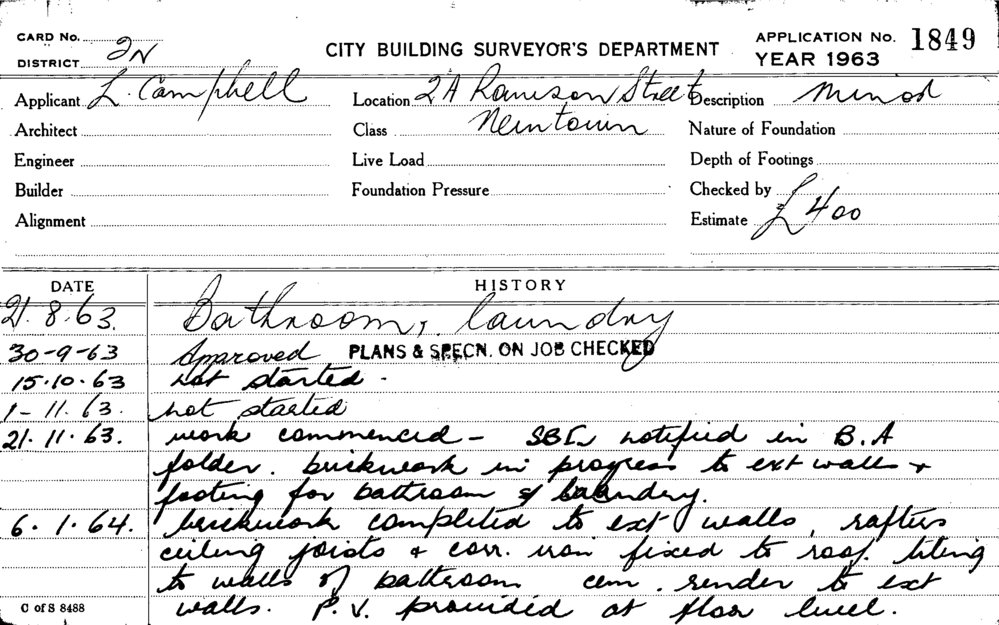 CARD No.
DISTRICT 2N
CITY BUILDING SURVEYOR'S DEPARTMENT
APPLICATION No. 1849
YEAR 1963
Applicant L. Campbell
Location 2A Rawson Street
Description Minor
Architect
Class Newtown
Nature of Foundation
Engineer
Live Load
Depth of Footings
Builder
Foundation Pressure
Checked by
Alignment
Estimate £400
DATE HISTORY
21.8.63. Bathroom, laundry
30-9-63 Approved PLANS & SPECN. ON JOB CHECKED
15.10.63 not started.
1-11.63. not started
21.11.63. work commenced - notified in B.A
folder. brickwork in progress to ext walls +
footing for bathroom & laundry.
6.1.64. brickwork completed to ext walls, rafters
ceiling joists + corr. iron fixed to roof. tiling
to walls of bathroom cem. render to ext
walls. P.V. provided at floor level.
C of S 8488